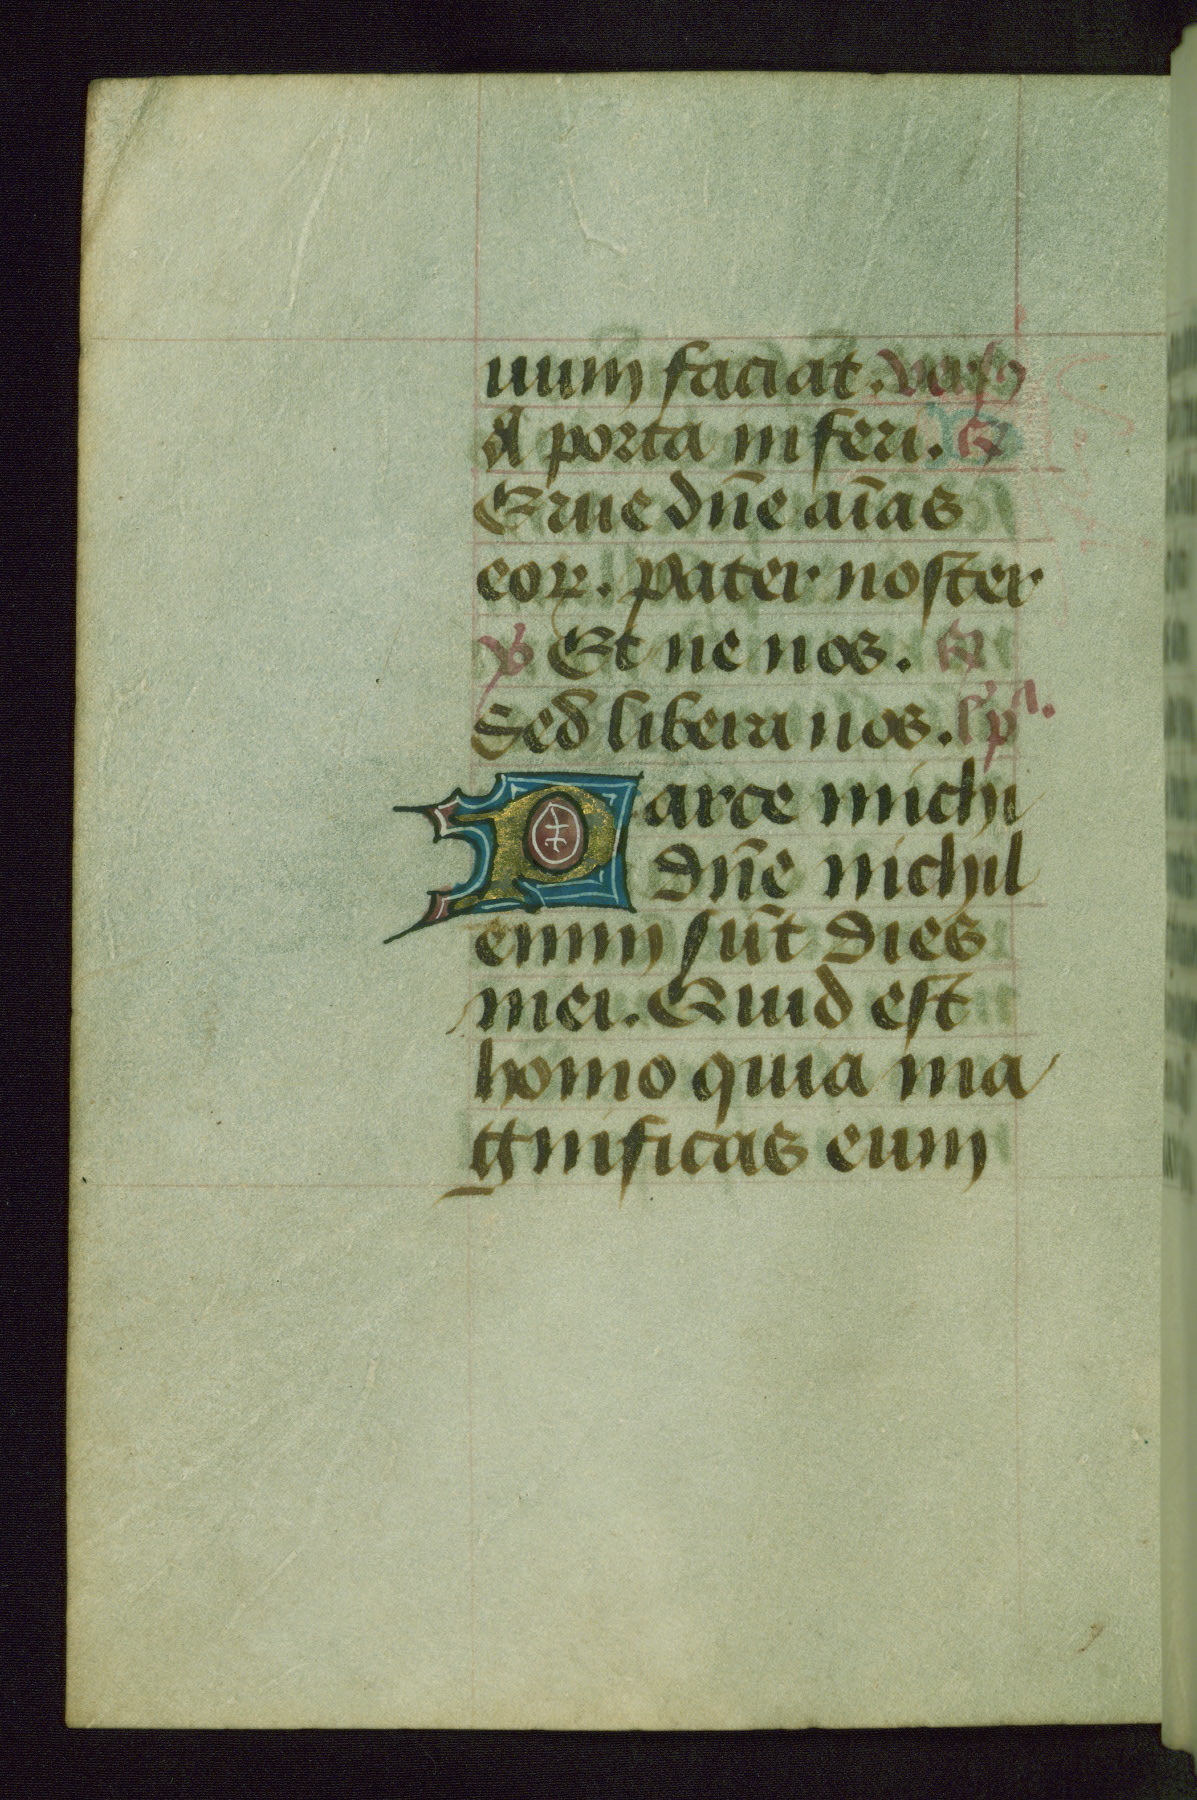 uum faciat. vers
A porta inferi. R
Erue dn̄e aīas
eoꝝ. pater noster
℣ Et ne nos. R
Sed libera nos. l'pᵃ.
Parce michi
dn̄e nichil
enim sūt dies
mei. Quid est
homo quia ma
gnificas eum